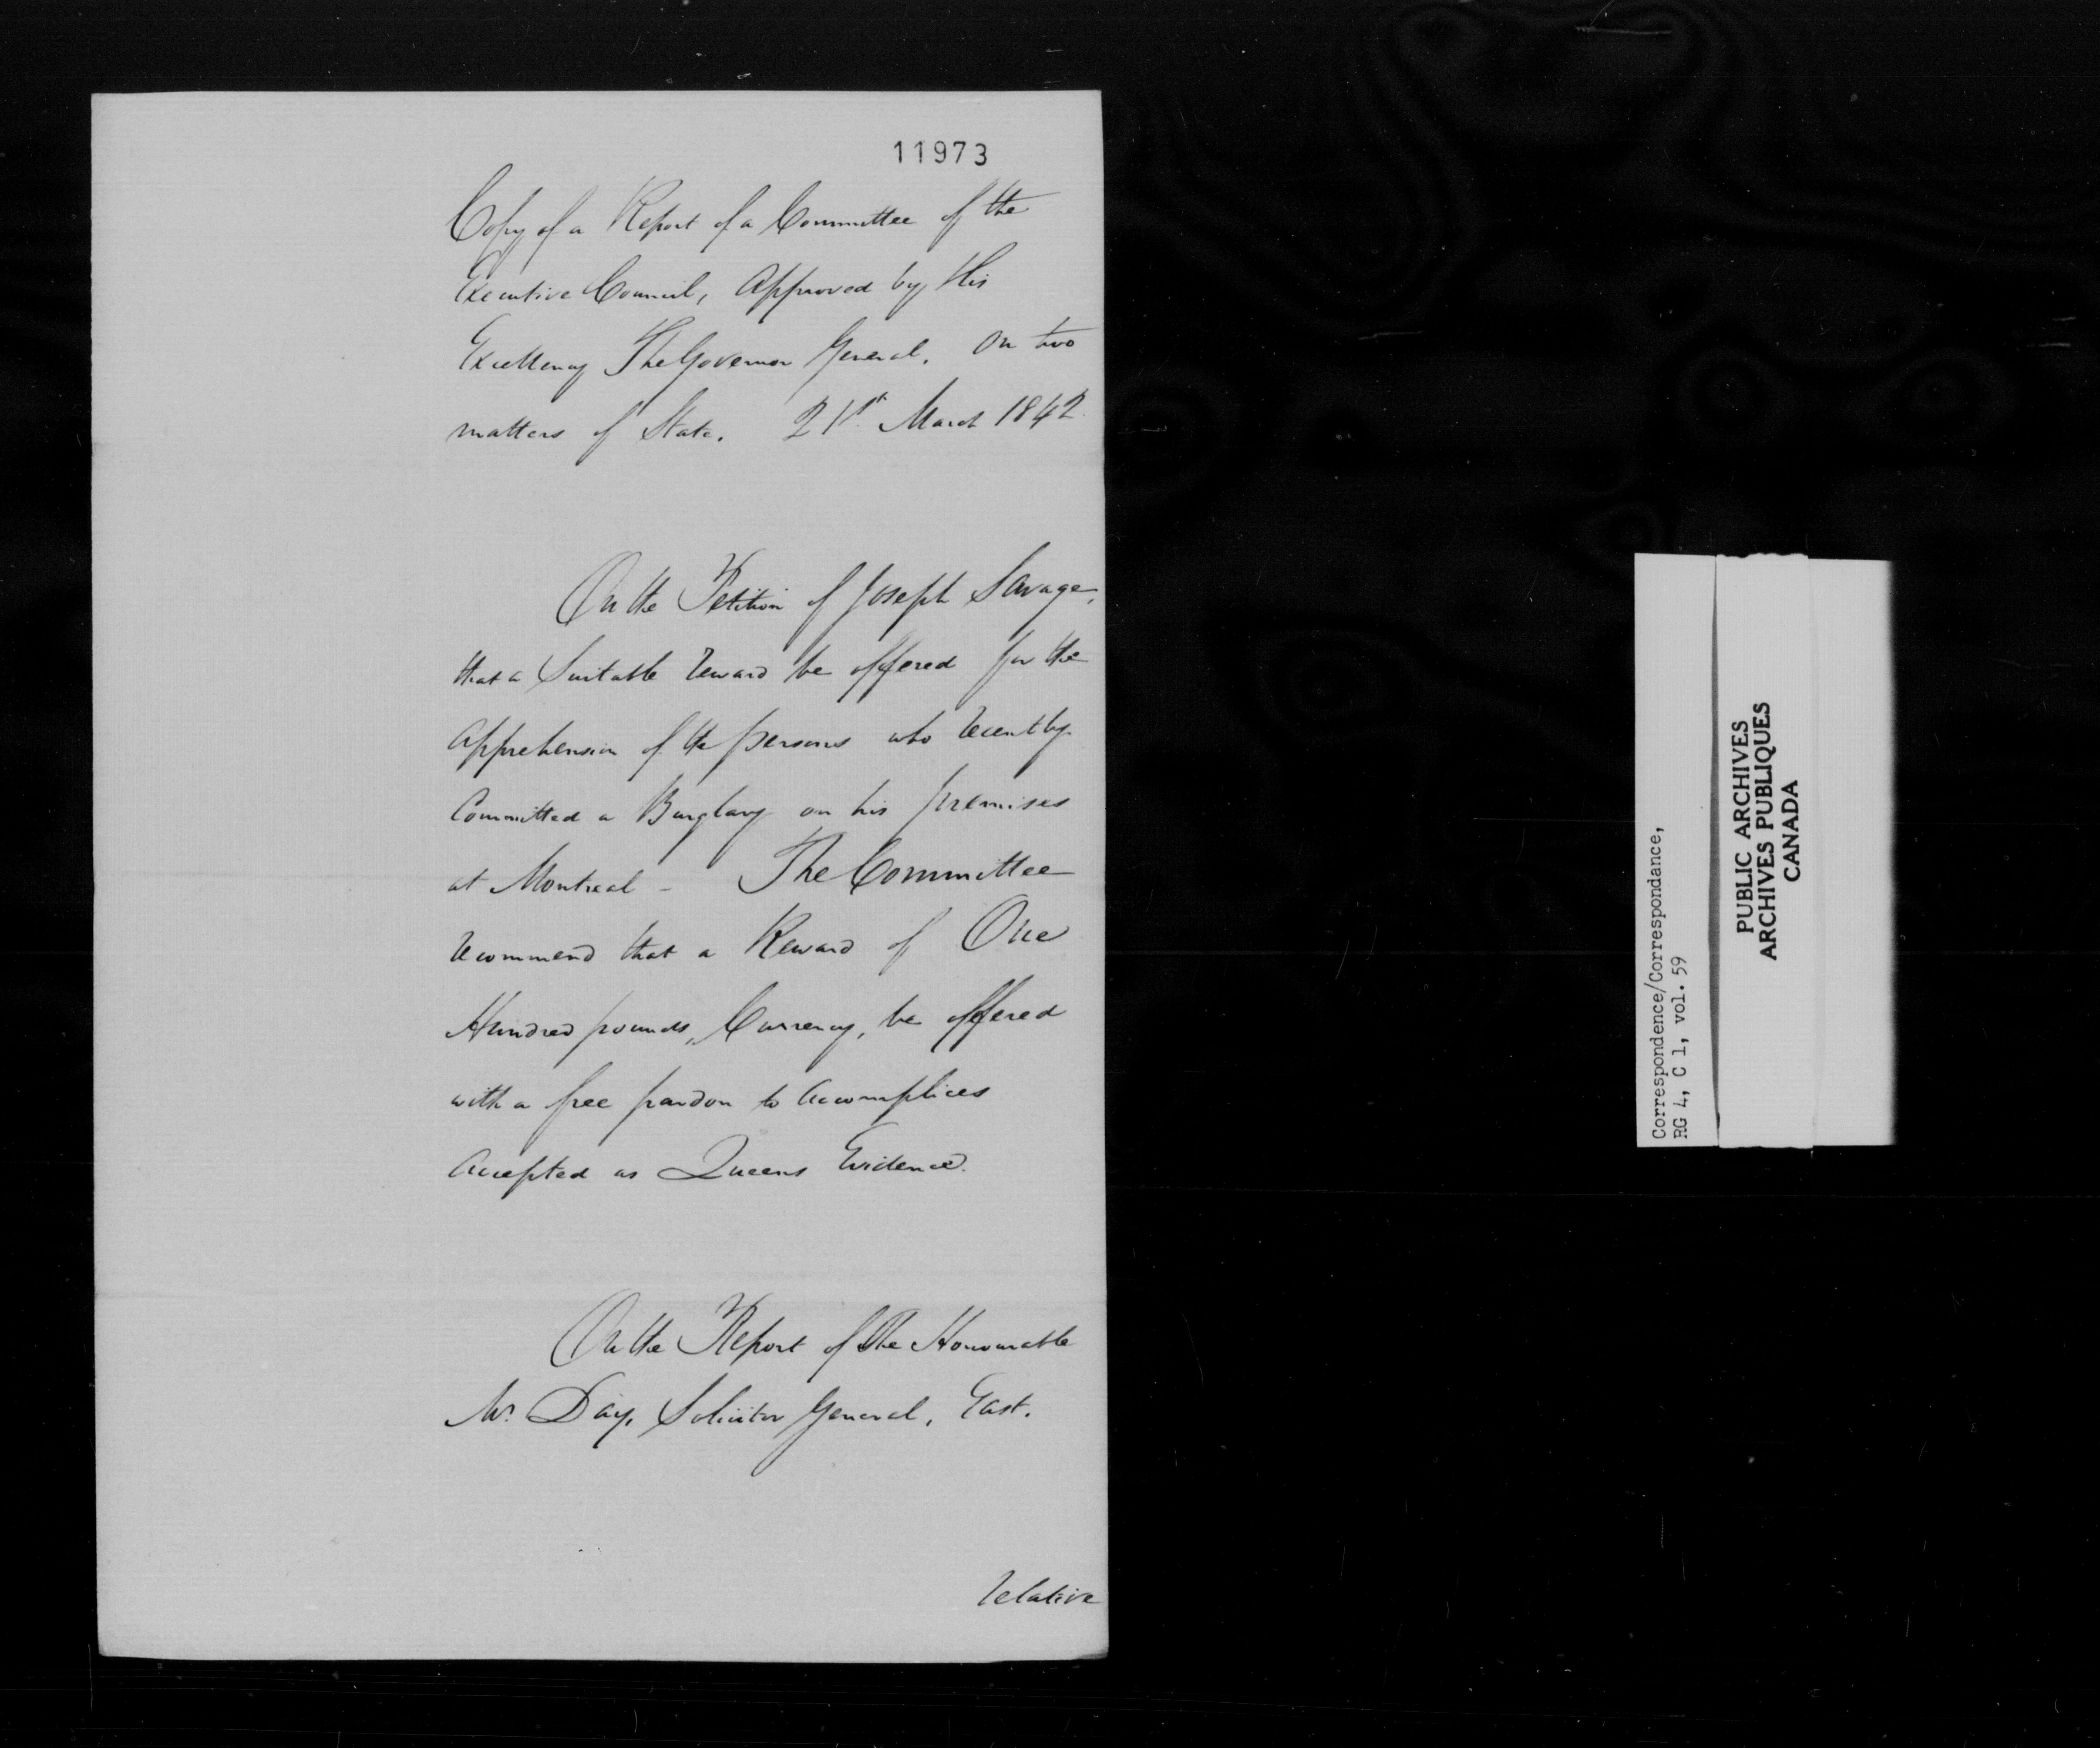 11973
Copy of a Report of a Committee of the
Executive Council, Approved by His
Excellency The Governor General, on two
matters of State. 21st March 1842
On the Petition of Joseph Savage,
that a Suitable reward be offered for the
Apprehension of the persons who recently
Committed a Burglary on his premises
at Montreal - The Committee
recommend that a Reward of One
Hundred pounds, Currency, be offered
with a free pardon to Accomplices
Accepted as Queens Evidence.
On the Report of the Honourable
Mr. Day, Solicitor General, East.
relative
Correspondence/Correspondance,
RG 4, C 1, vol. 59
PUBLIC ARCHIVES
ARCHIVES PUBLIQUES
CANADA